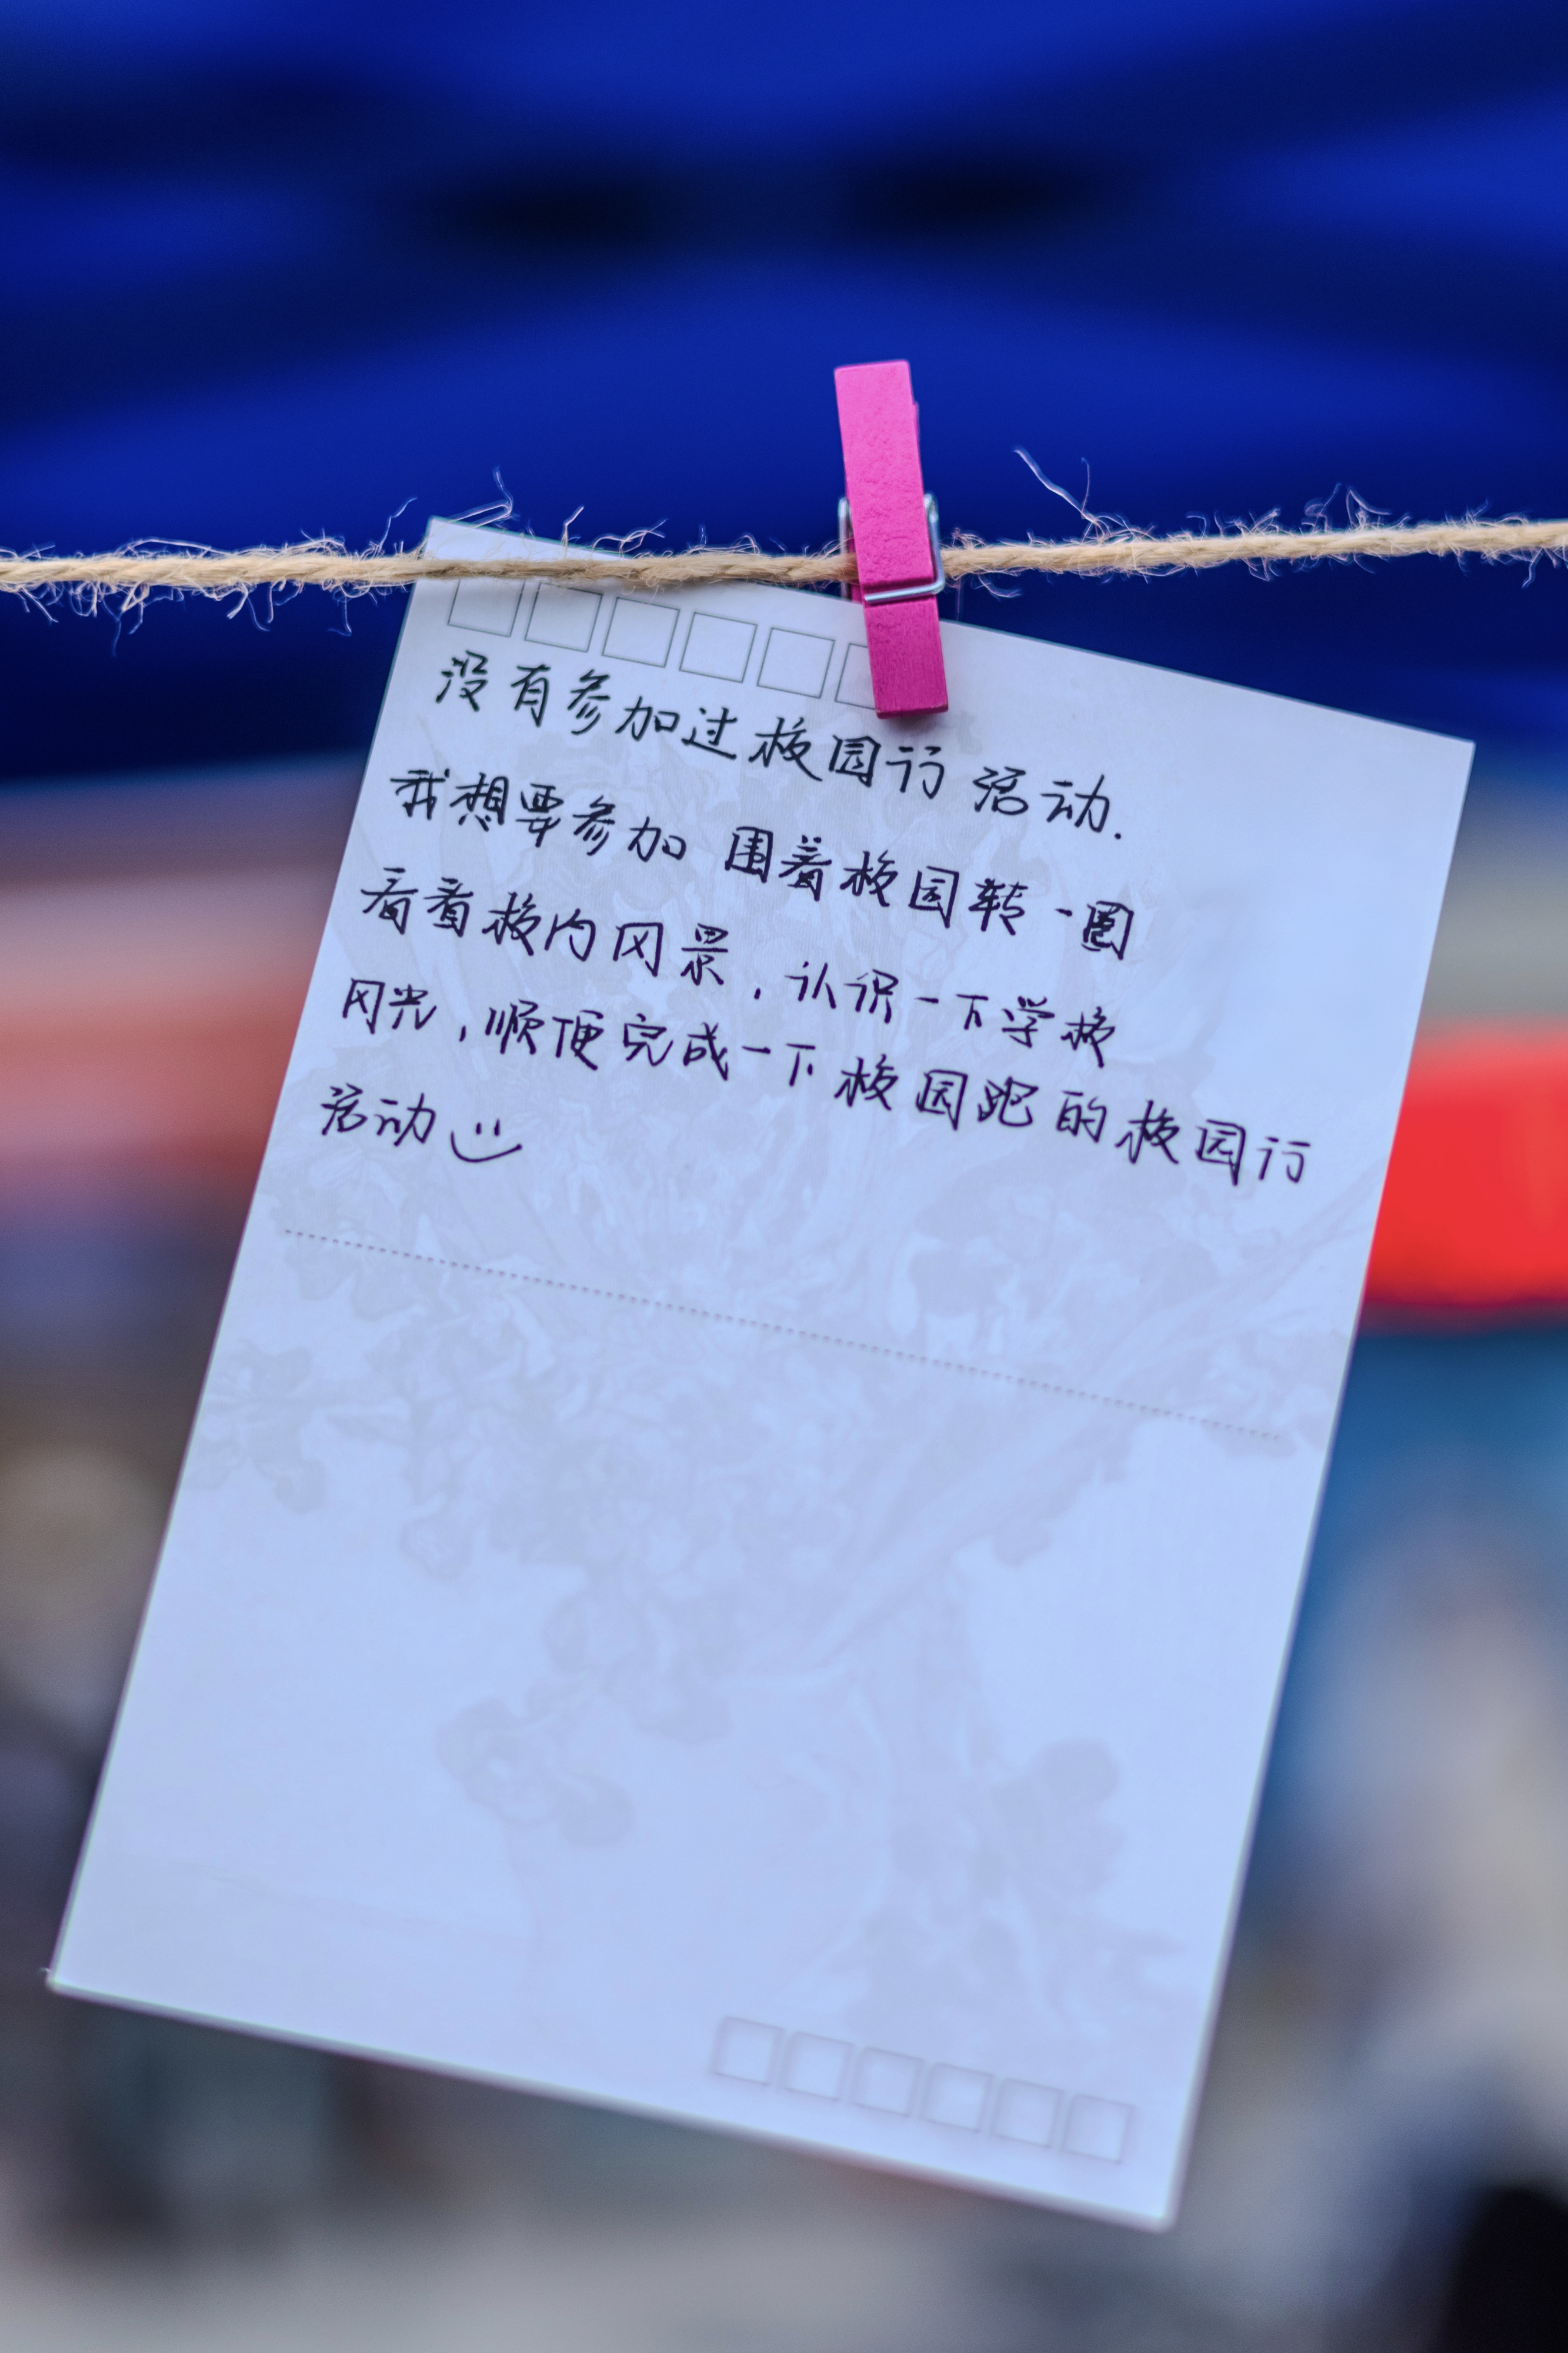 没有参加过校园行 活动.
我想要参加 围着校园转一圈
看看校内风景,认识一下学校
风光,顺便完成一下校园跑的校园行
活动